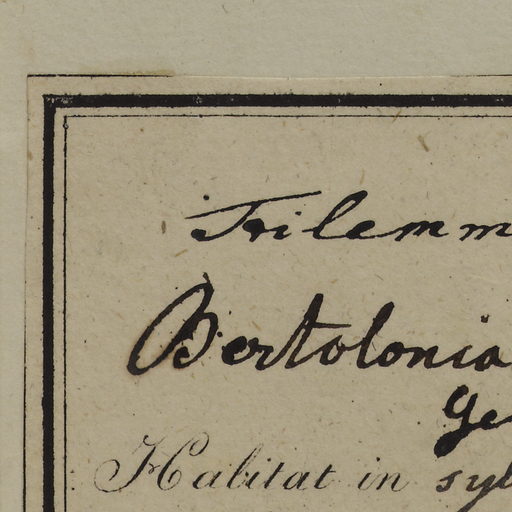 Trilemm
Bertolonia
Ge
Habitat in syl